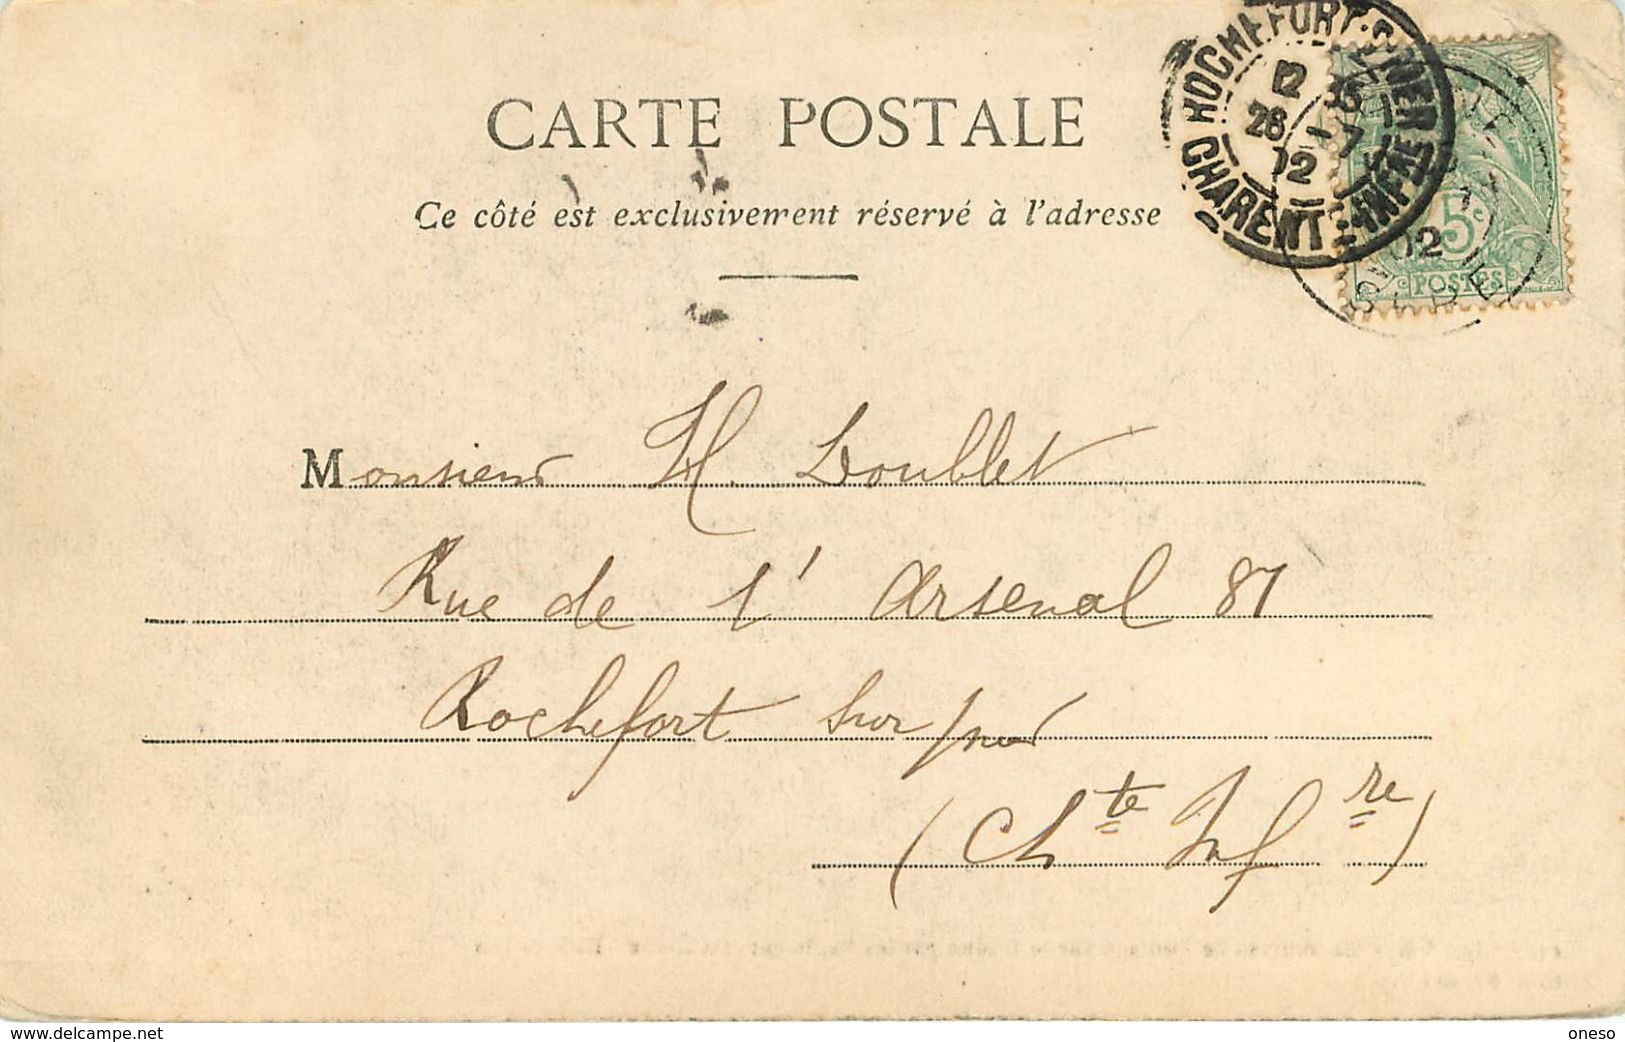 CARTE POSTALE
Ce côté est exclusivement réservé à l'adresse
ROCHEFORT-S-MER
12 35
26 -7
02
CHARENTE-INFRE
02
5c
POSTES
Monsieur H. Doublet
Rue de l'Arsenal 87
Rochefort sur mer
(Chte Infre)
https://www.delcampe.net
oneso